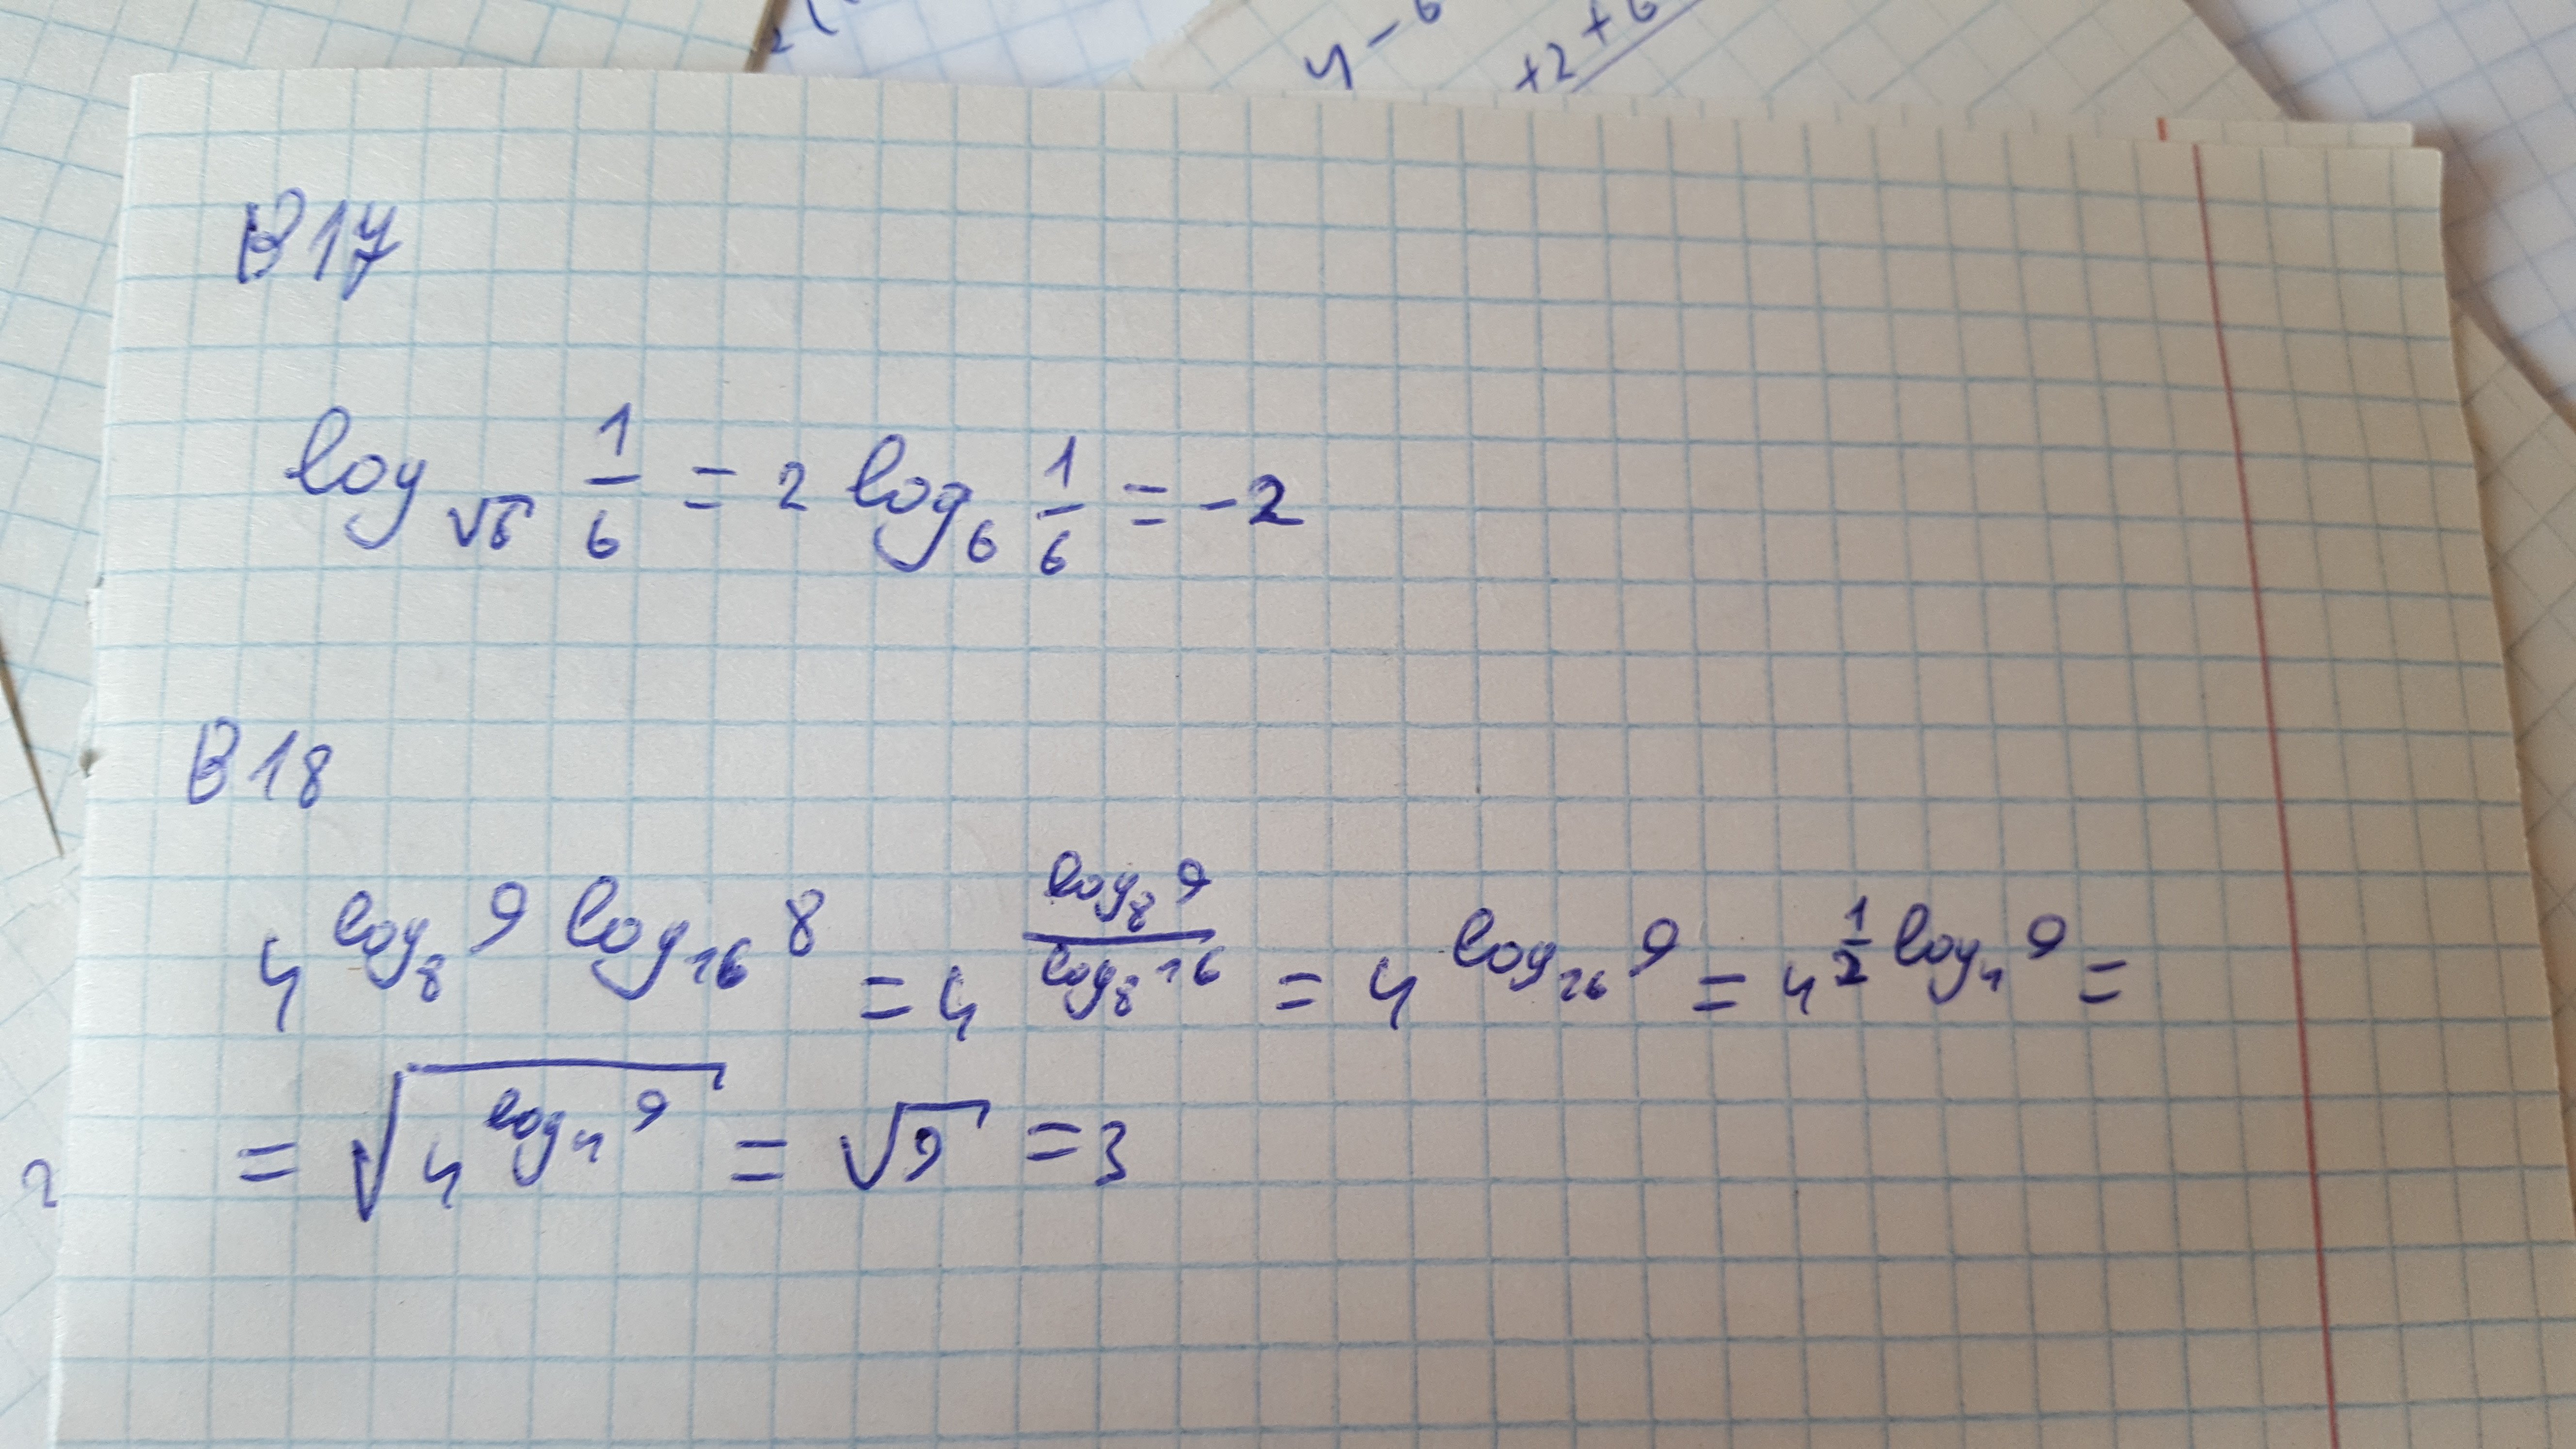 y - 6
+2 + 6
B 17
log_√6 1/6 = 2 log_6 1/6 = -2
B 18
4^(log_8 9 log_16 8) = 4^(log_8 9 / log_8 16) = 4^(log_16 9) = 4^(1/2 log_4 9) =
= √(4^(log_4 9)) = √9 = 3